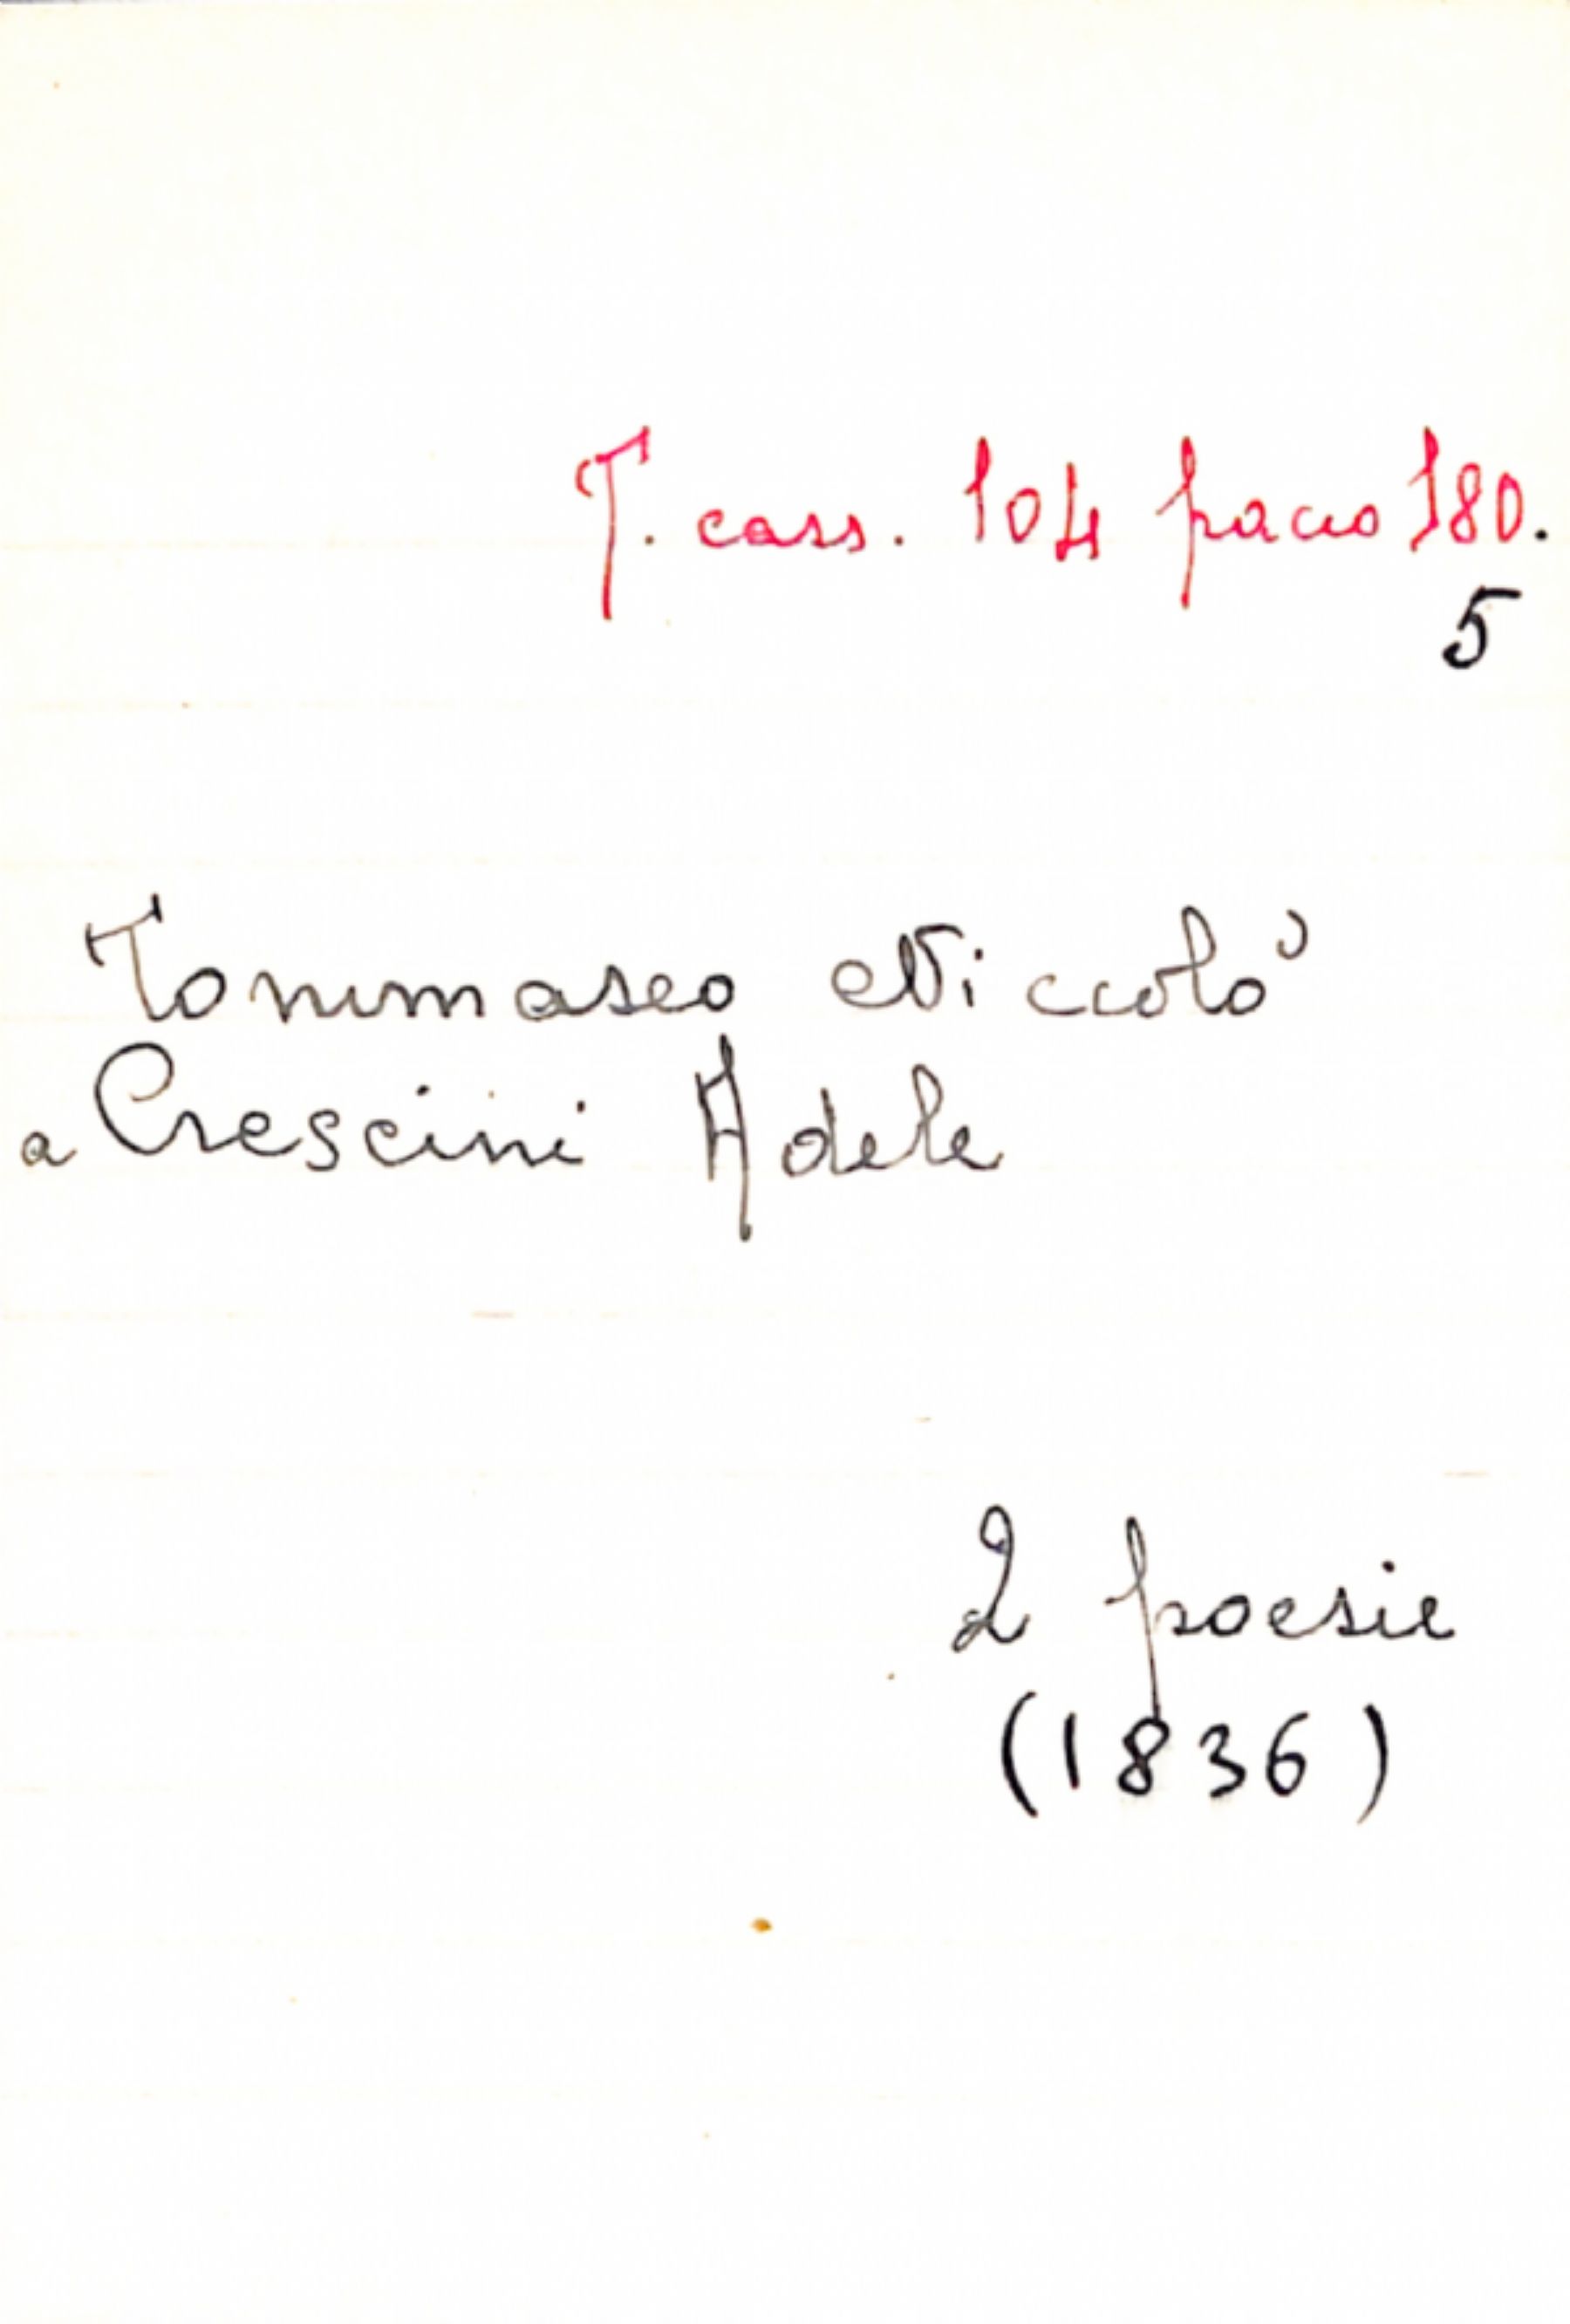 T. cass. 104 pacco 180.
5
Tommaseo Niccolò
a Crescini Adele
2 poesie
(1836)